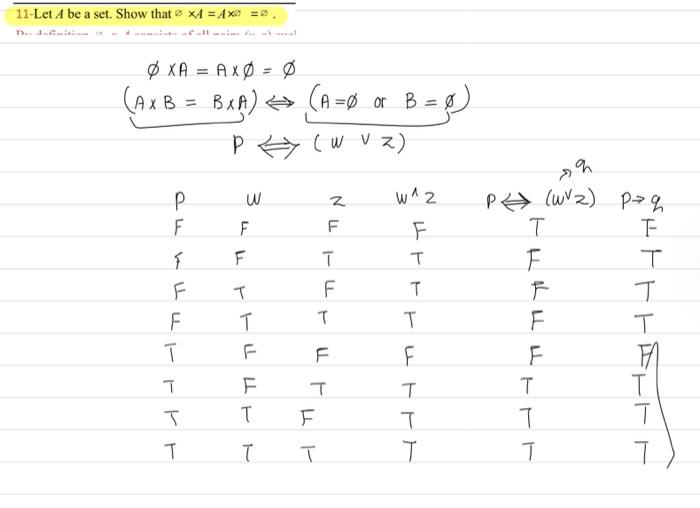 11-Let A be a set. Show that ∅ ×A = A×∅ =∅ .
∅ × A = A × ∅ = ∅
(A × B = B × A) ⟺ (A = ∅ or B = ∅)
P ⟺ (W ∨ Z)
q
P W Z W ^ Z P ⟺ (W ∨ Z) P → q
F F F F T F
F F T T F T
F T F T F T
F T T T F T
T F F F F F
T F T T T T
T T F T T T
T T T T T T